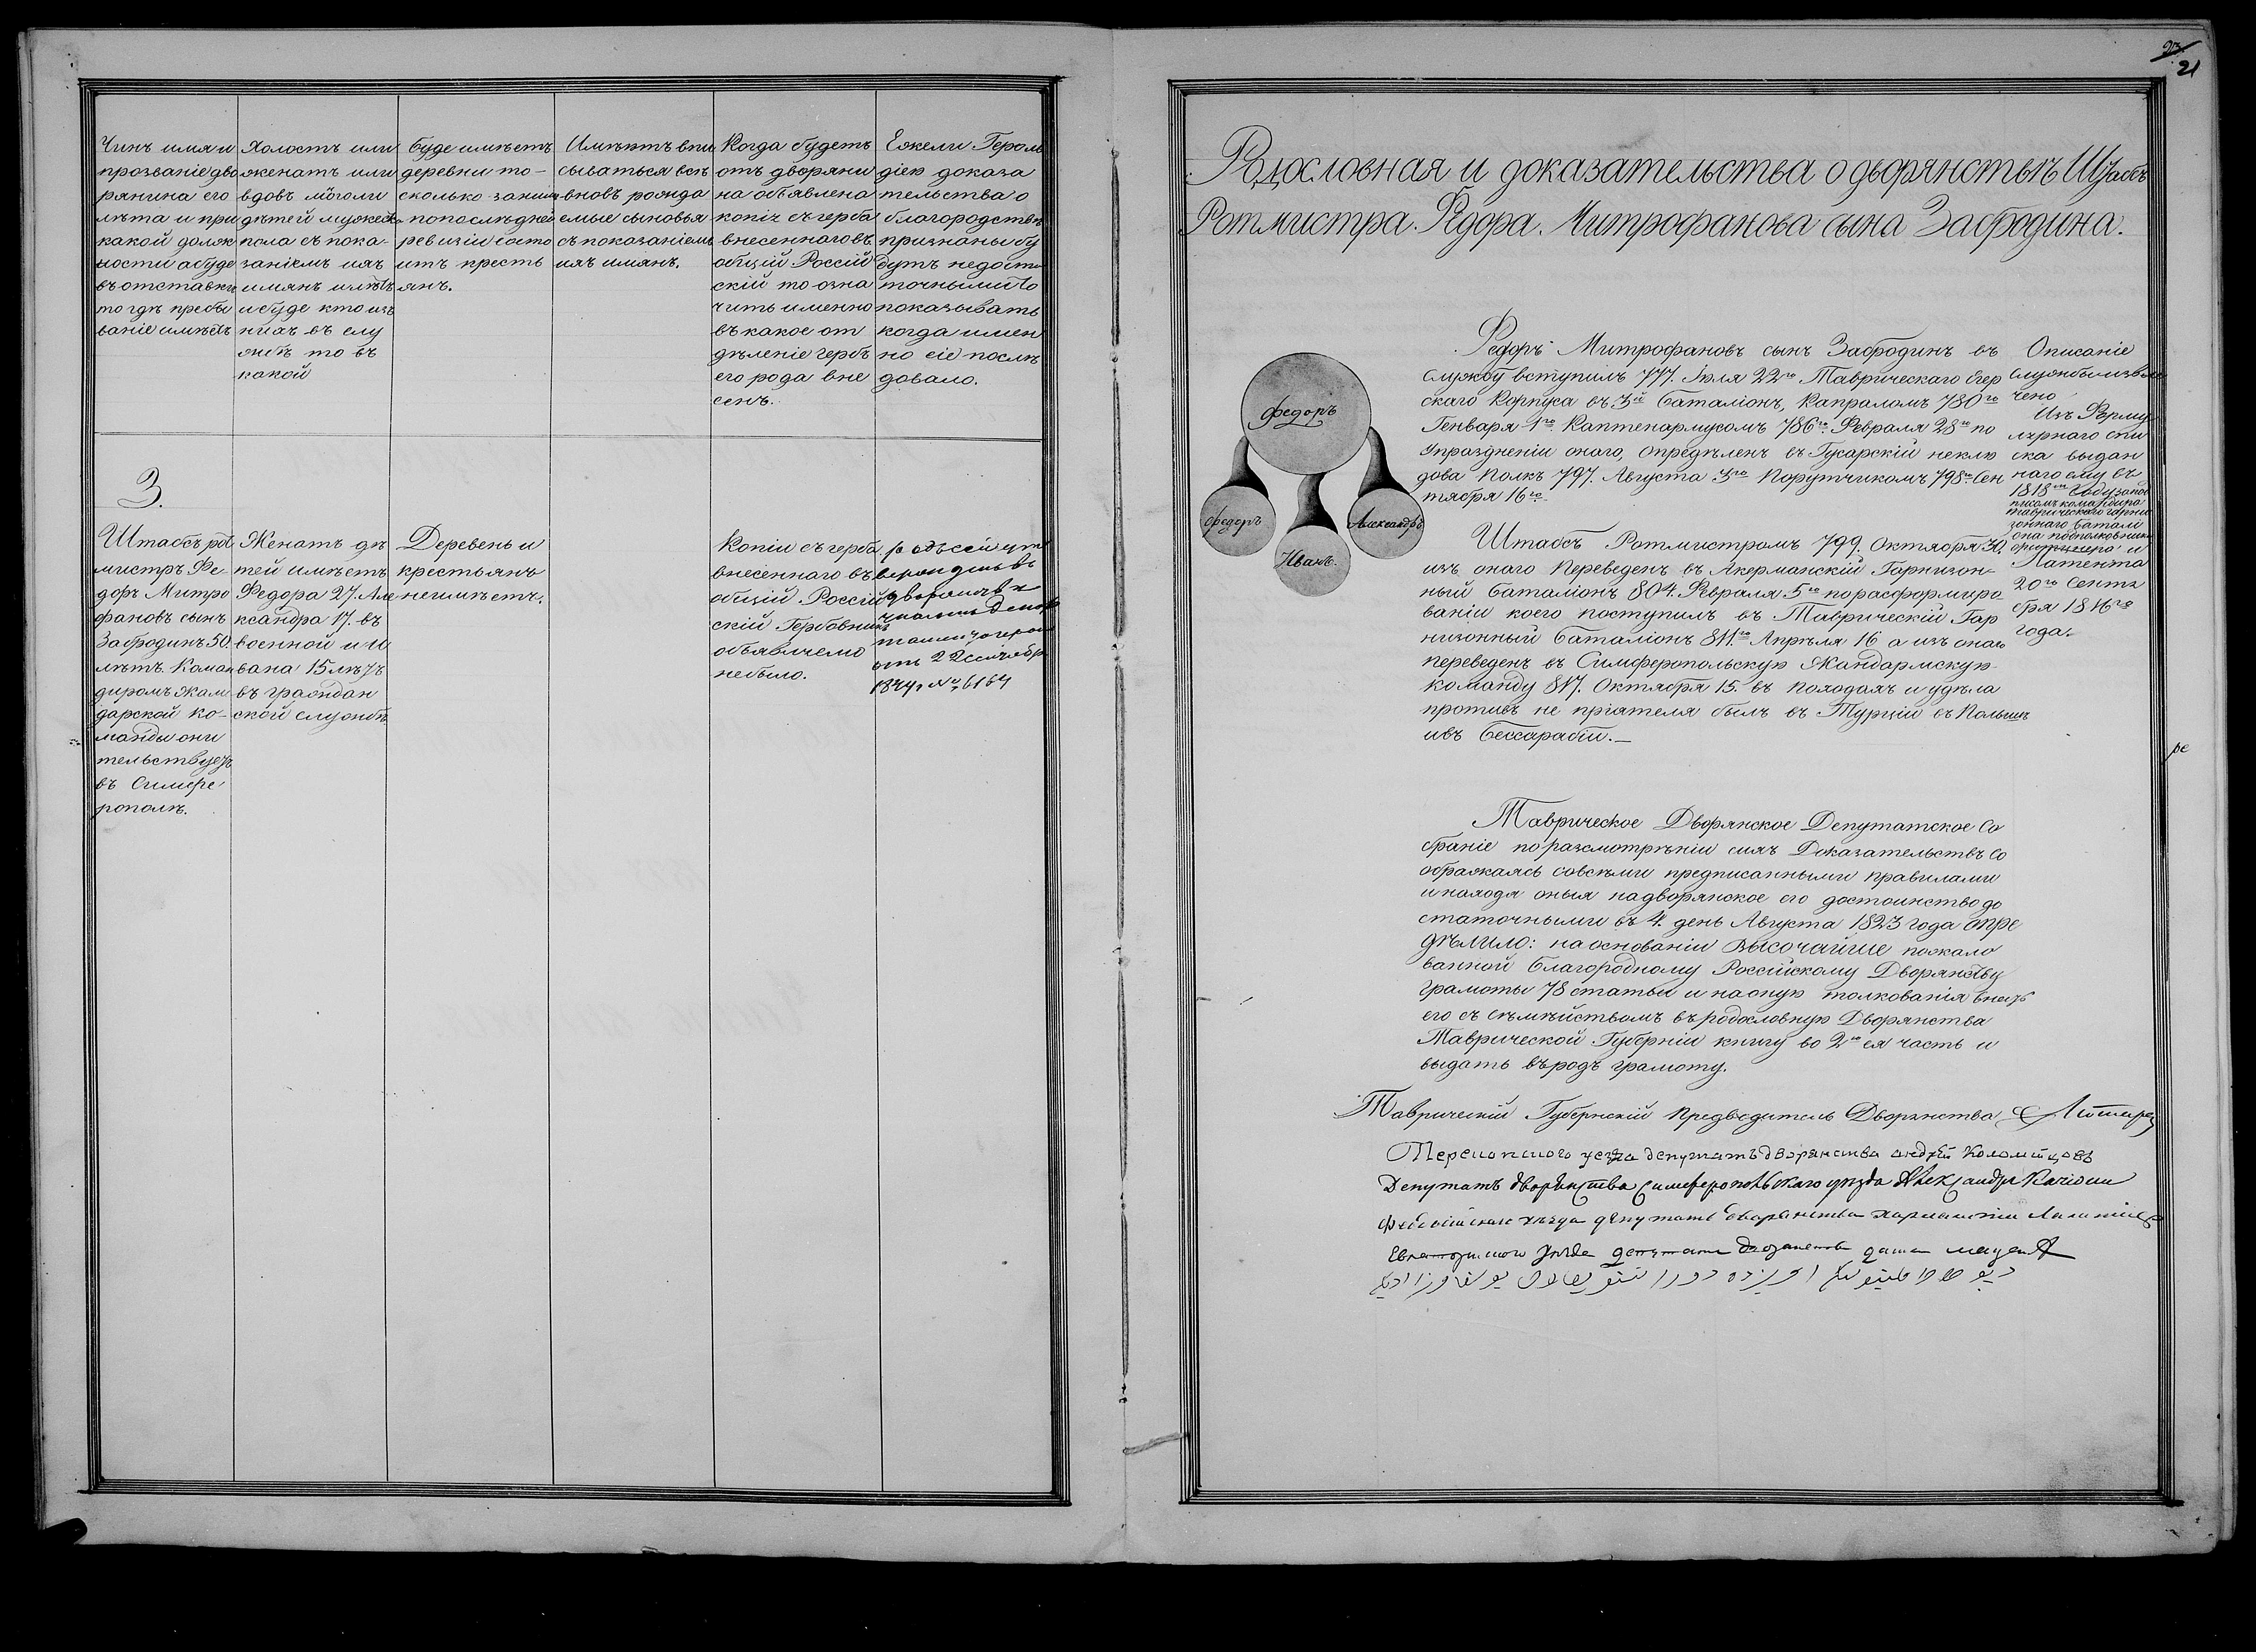 Чинъ имя и
прозваніе дво
рянина его
лѣта и при
какой долж
ности а буде
въ отставкѣ
то гдѣ пребы
ваніе имѣетъ
Холостъ или
женатъ или
вдовъ много ли
дѣтей мужеска
пола съ пока-
заніемъ ихъ
имянъ и лѣтъ
и буде кто изъ
нихъ въ слу
жбѣ то въ
какой
буде имѣетъ
деревни то-
сколько за нимъ
по послѣдней
ревизіи состо
итъ кресть
янъ.
Имѣютъ впи
сываться всѣ
вновь рожда
емые сыновья
съ показаніемъ
ихъ имянъ.
Когда будетъ
отъ дворяни
на объявлена
копія съ герба
внесеннаго въ
общій Россій
скій то озна
чить именно
въ какое от
дѣленіе гербъ
его рода вне
сенъ.
Ежели Героль
діею доказа
тельства о
благородствѣ
признаны бу
дутъ недоста
точными то
показывать
когда имен
но сіе послѣ
довало.
3.
Штабсъ рот
мистръ Фе-
доръ Митро
фановъ сынъ
Забродинъ 50.
лѣтъ. Коман
диромъ жан
дарской ко-
манды жи
тельствуетъ
въ Симфе
рополѣ.
Женатъ дѣ
тей имѣетъ
Федора 27 Але
ксандра 17. въ
военной и И
вана 15 лѣтъ
въ граждан
ской службѣ
Деревень и
крестьянъ
неимѣетъ.
Копіи съ герба
внесеннаго въ
общій Россій
скій Гербовникъ
объявлено
небыло.
родъ сей ут
вержденъ въ
дворянств
отъ 22 сентября
1844 г. № 6164
21
Родословная и доказательства о дворянствѣ Штабсъ
Ротмистра Федора Митрофанова сына Забродина.
федоръ
федоръ
Иванъ.
Александръ
Федоръ Митрофановъ сынъ Забродинъ въ
Службу вступилъ 777. Іюля 22го Таврическаго Егер
скаго Корпуса въ 3й баталіонъ, Капраломъ 780го
Генваря 1го Каптенармусомъ 786го Февраля 28го по
упраздненіи онаго, опредѣленъ въ Гусарскій неклю
дова Полкъ 797. Августа 3го Порутчикомъ 798го Сен
тября 16го
Штабсъ Ротмистромъ 799. Октября 30.
изъ онаго переведенъ въ Акерманскій Гарнизон-
ный баталіонъ 804. Февраля 5го по расформиро
ваніи коего поступилъ въ Таврическій Гар
низонный баталіонъ 811го Апрѣля 16 а изъ онаго
переведенъ въ Симферопольскую Жандармскую-
команду 817. Октября 15. въ походахъ и у дѣла
противъ не пріятеля былъ въ Турціи въ Польшѣ
ивъ Бессарабіи.—
Описаніе
службы извле
чено
Изъ Форму
лярнаго спи
ска выдан
наго ему въ
1818м Году запод
писомъ командира
таврическаго гарни
зоннаго баталі
она подполковника
и
Патента
20го Сентя
бря 1816го
года.
ре
Таврическое Дворянское Депутатское Со
браніе по разсмотрѣніи сихъ Доказательствъ Со
ображаясь совсѣми предписанными правилами
и находя оныя на дворянское его достоинство до
статочными въ 4. день Августа 1823 года опре
дѣлило: на основаніи Высочайше пожало
ванной благородному Россійскому Дворянству
грамоты 78 статьи и на оную толкованія внесть
его съ семѣйствомъ въ родословную Дворянства
Таврической Губерніи книгу во 2ю ея часть и
выдать въ родъ грамоту.
Таврическій Губернскій Предводитель Дворянства
уезда депутатъ дворянства андрей Коломѣйцовъ
Депутатъ дворянства Симферопольскаго уезда Александръ Качіони
уезда депутатъ дворянства
Евпаторискаго уезда депутатъ дворянства